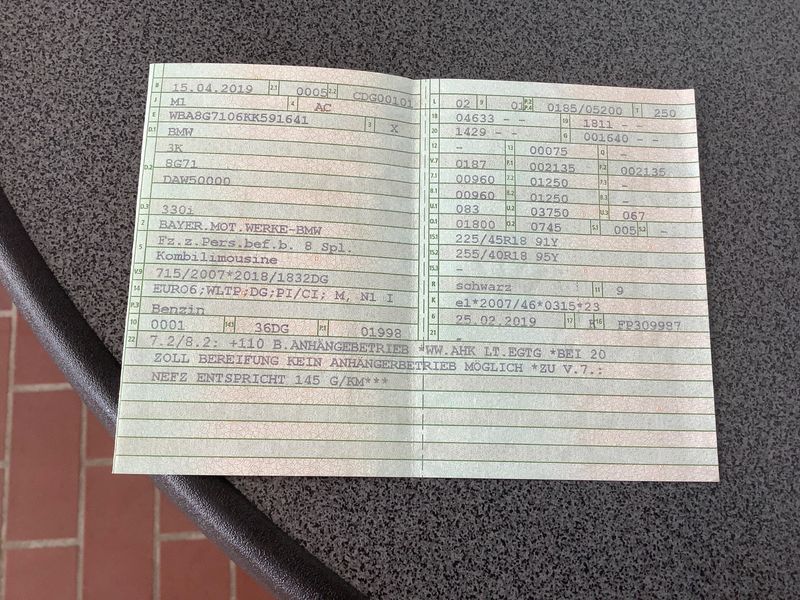 B 15.04.2019 2.1 0005 2.2 CDG00101
J M1 4 AC
E WBA8G7106KK591641 3 X
D.1 BMW
D.2 3K
8G71
DAW50000
D.3 330i
2 BAYER.MOT.WERKE-BMW
5 Fz.z.Pers.bef.b. 8 Spl.
Kombilimousine
V.9 715/2007*2018/1832DG
14 EURO6;WLTP;DG;PI/CI; M, N1 I
P.3 Benzin
10 0001 14.1 36DG P.1 01998
L 02 9 01 P.2 P.4 0185/05200 T 250
18 04633 - - 19 1811 - -
20 1429 - - G 001640 - -
12 - 13 00075 Q -
V.7 0187 F.1 002135 F.2 002135
7.1 00960 7.2 01250 7.3 -
8.1 00960 8.2 01250 8.3 -
U.1 083 U.2 03750 U.3 067
O.1 01800 O.2 0745 S.1 005 S.2 -
15.1 225/45R18 91Y
15.2 255/40R18 95Y
15.3 -
R schwarz 11 9
K e1*2007/46*0315*23
6 25.02.2019 17 K 16 FP309987
21 -
22 7.2/8.2: +110 B.ANHÄNGEBETRIEB *WW.AHK LT.EGTG *BEI 20
ZOLL BEREIFUNG KEIN ANHÄNGERBETRIEB MÖGLICH *ZU V.7.:
NEFZ ENTSPRICHT 145 G/KM***